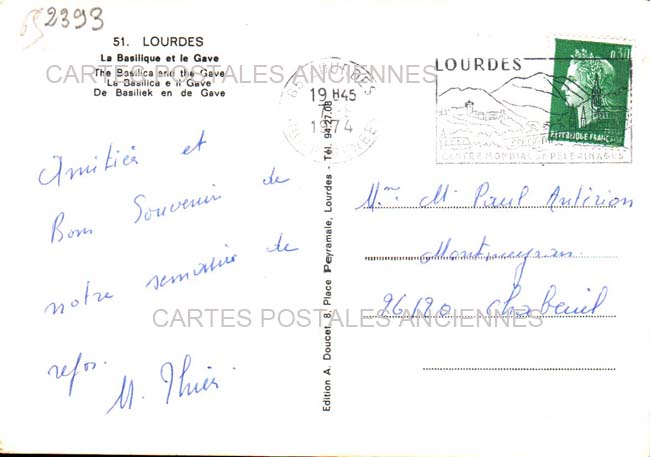 652393
51. LOURDES
La Basilique et le Gave
The Basilica and the Gave
La Basilica e il Gave
De Basiliek en de Gave
CARTES POSTALES ANCIENNES
65 LOURDES
19 H45
1974
LOURDES
CENTRE MONDIAL DE PELERINAGES
0,30
REPUBLIQUE FRANÇAISE
Amitiés et
Bon Souvenir de
notre semaine de
repos.
M. Thier
Edition A. Doucet, 8, Place Peyramale, Lourdes - Tél. 94.27.08
Mme M Paul Antérion
Montmeyran
26120 Chabeuil
CARTES POSTALES ANCIENNES